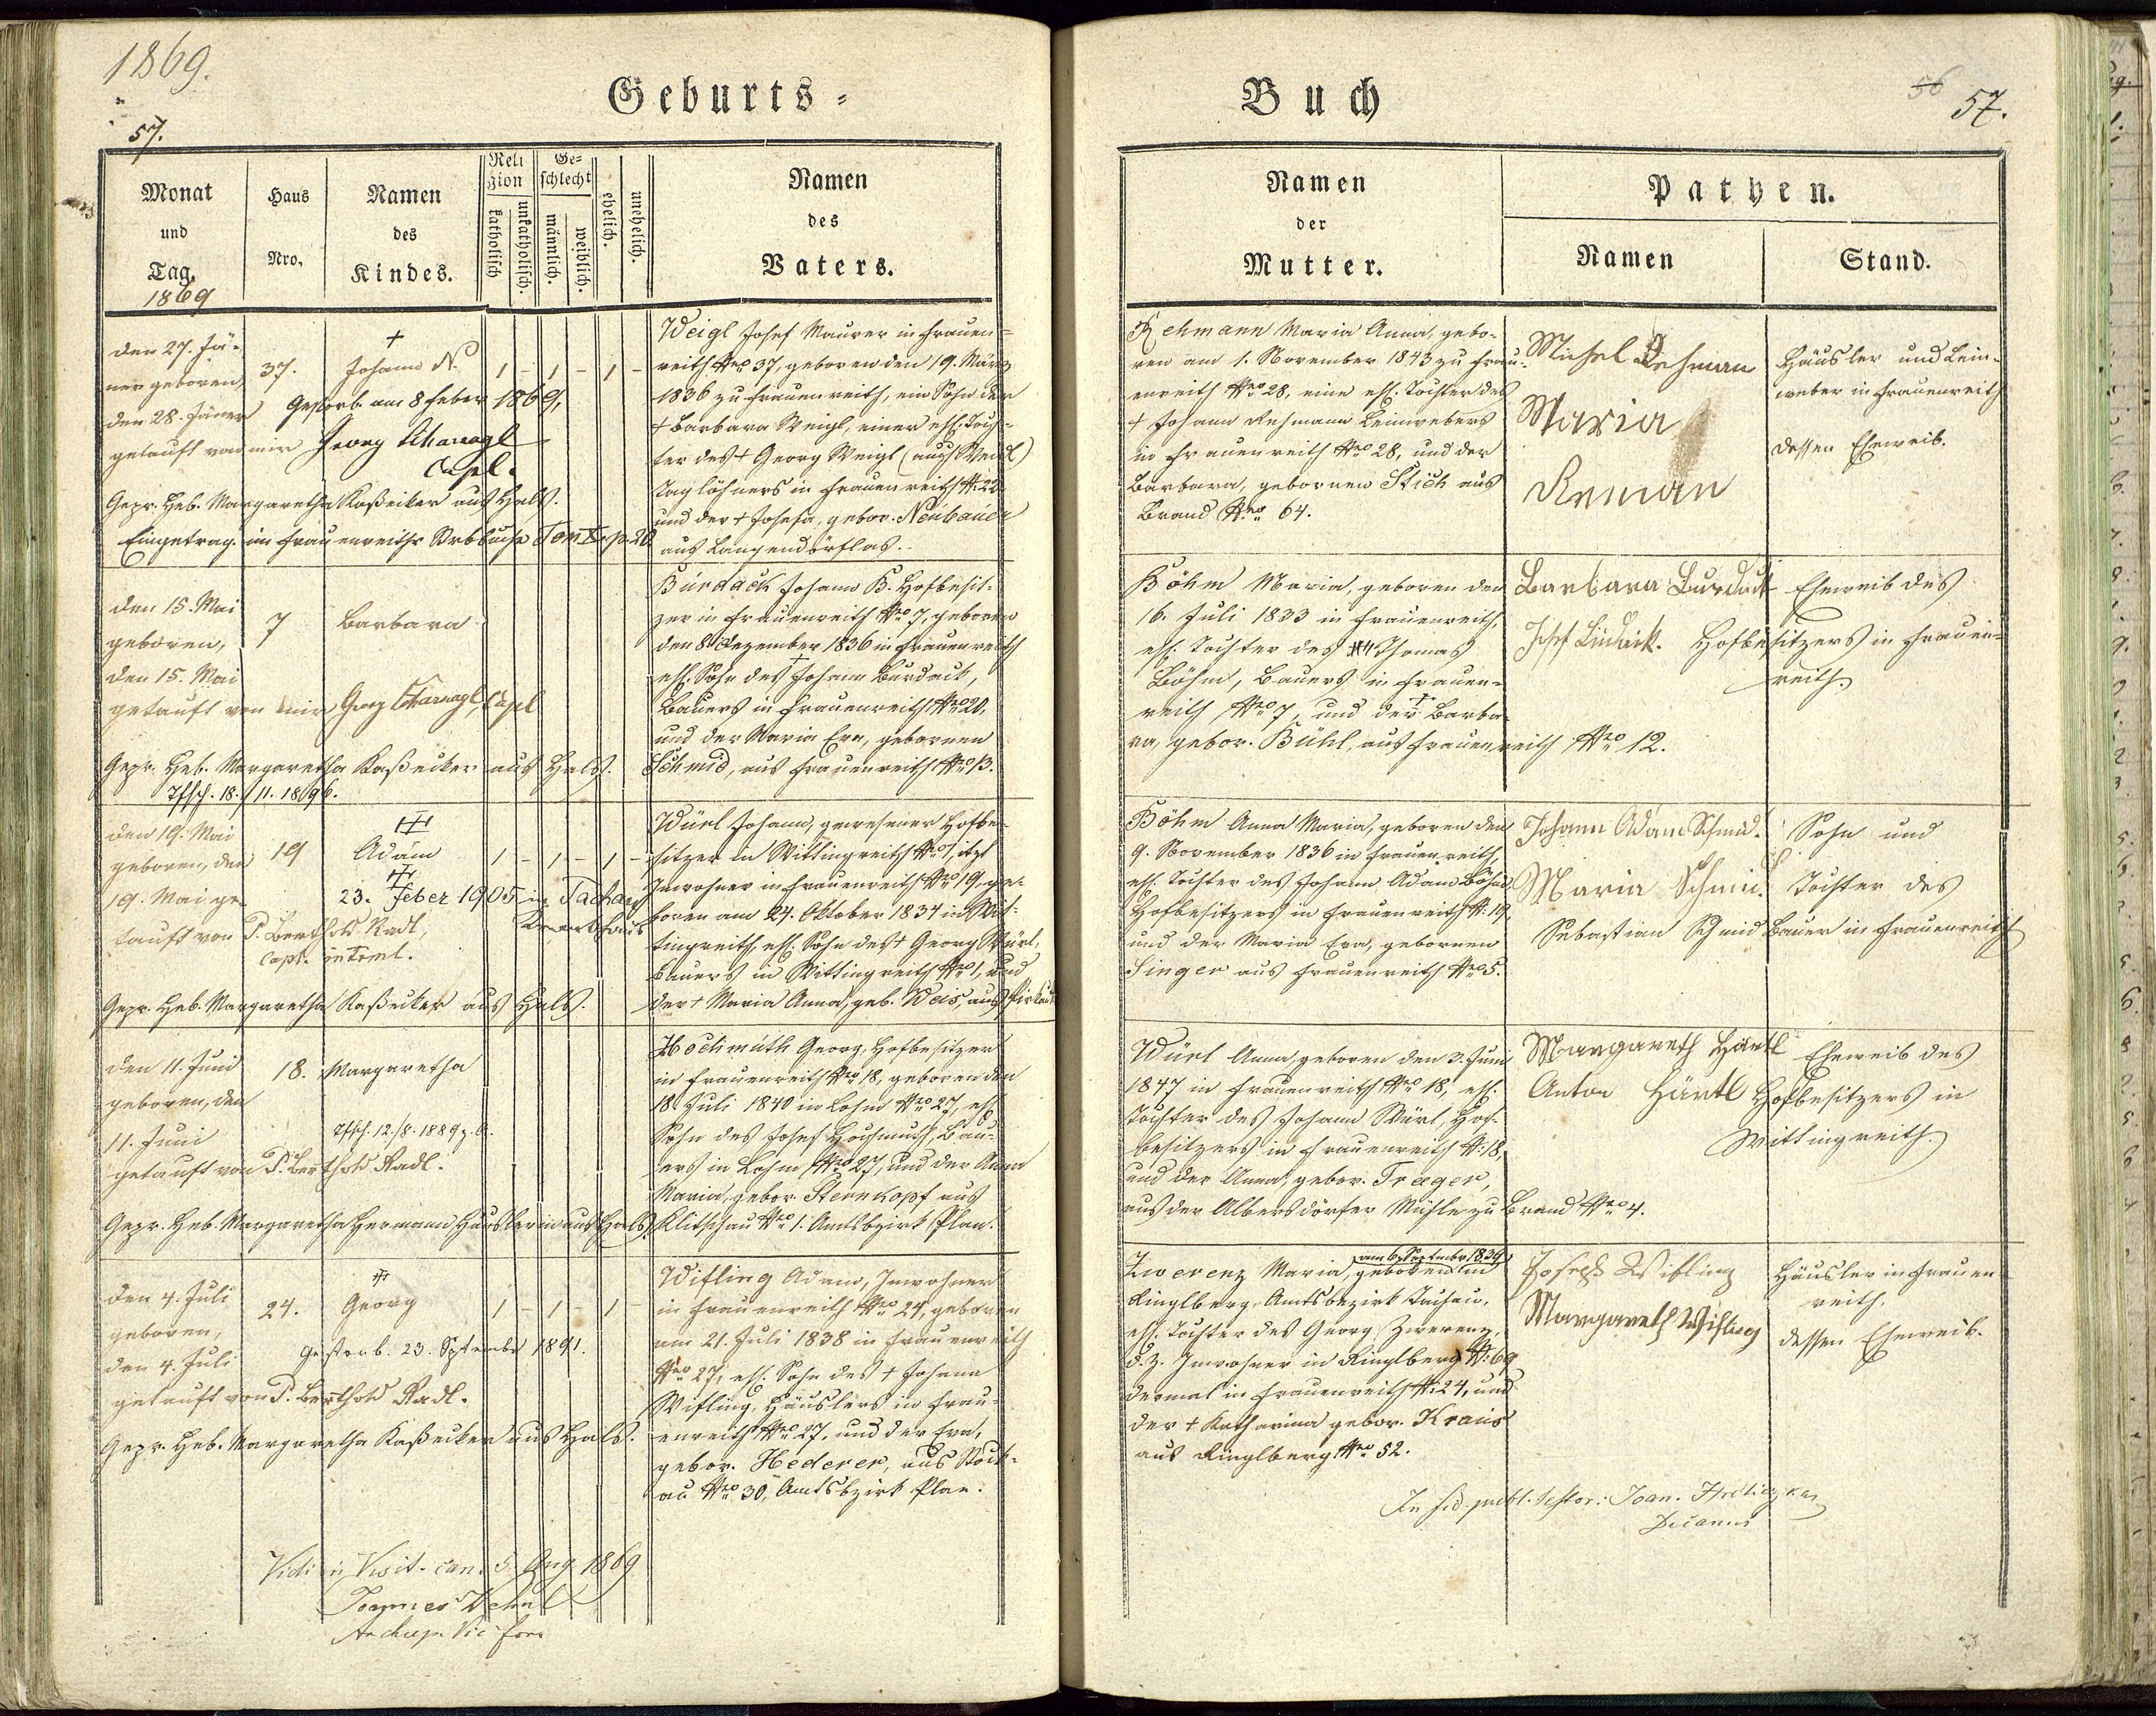 1869.
57.
Geburts-
Monat
und
Tag.
1869
Haus
Nro.
Namen
des
Kindes.
Reli
gion
katholisch
unkatholisch.
Ge=
schlecht
männlich.
weiblich.
ehelich.
unehelich.
Namen
des
Vaters.
den 27. Jä-
ner geboren,
den 28. Jäner
getauft von mir Georg Scharnagl
Capl.
37.
†
Johann N.
1 - 1 - 1 -
Gestorb. am 8 Feber 1869,
Gepr. Heb. Margaretha Kaßecker aus Hals.
Eingetrag. im Frauenreither Strbbuche Tom II. p. 20
Weigl Josef Maurer in Frauen=
reith Nro 37, geboren den 19. März
1836 zu Frauenreith, ein Sohn der
† Barbara Weigl, einer ehl. Toch-
ter des † Georg Weigl (auch Weidl)
Taglöhners in Frauenreith N. 22
und der † Josefa, gebor. Neubauer
aus Langendörflas.
den 15. Mai
geboren,
den 15. Mai
getauft von mir Georg Scharnagl, Capl
7
Barbara
Gepr. Heb. Margaretha Kaßecker aus Hals.
Tfsch. 18./11. 1896.
Burdack Johann B. Hofbesit-
zer in Frauenreith Nro 7, geboren
den 8 Dezember 1836 in Frauenreith
ehl. Sohn des † Johann Burdack,
Bauers in Frauenreith Nro 20,
und der Maria Eva, gebornen
Schmid, aus Frauenreith Nro 13.
den 19. Mai
geboren, den
19. Mai ge-
tauft von P. Berthold Radl,
Capl. interml.
19
Adam
1 - 1 - 1 -
23. Feber 1905 in Tachau
Krankhaus
Gepr. Heb. Margaretha Kaßecker aus Hals.
Würl Johann, gewesener Hofbe-
sitzer in Wittingreith Nro 1, itzt
Inwohner in Frauenreith Nro 19, ge-
boren am 24. Oktober 1834 in Wit-
tingreith, ehl. Sohn des † Georg Würl,
Bauers in Wittingreith Nro 1, und
der † Maria Anna, geb. Weis, aus
den 11. Juni
geboren, den
11. Juni
getauft von P. Berthold Radl.
18.
Margaretha
Tfsch. 12./8. 1889
Gepr. Heb. Margaretha Hermann Häuslerin aus Hals
Hochmuth Georg, Hofbesitzer
in Frauenreith Nro 18, geboren den
18. Juli 1840 in Lohm Nro 27, ehl.
Sohn des Josef Hochmuth, Bau-
ers in Lohm Nro 27, und der Anna
Maria, gebor. Sternkopf aus
Klitschau Nro 1. Amtsbzirk Plan.
den 4. Juli
geboren,
den 4. Juli
getauft von P. Berthold Radl.
24.
Georg
1 - 1 - 1 -
Gestorb. 23. Septembr 1891.
Gepr. Heb. Margaretha Kaßecker aus Hals.
Wifling Adam, Inwohner
in Frauenreith Nro 24, geboren
am 21. Juli 1838 in Frauenreith
Nro 27, ehl. Sohn des † Johann
Wifling, Häuslers in Frau-
enreith Nro 27, und der Eva,
gebor. Hederer, aus Stock-
au Nro 30, Amtsbzirk Plan.
Vidi in Visit. can. 5 Aug 1869
Joannes
Buch
56
57.
Namen
der
Mutter.
Pathen.
Namen
Stand.
Rehmann Maria Anna, gebo-
ren am 1. November 1843 zu Frau-
enreith Nro 28, eine ehl. Tochter des
† Johann Rehmann Leinwebers
in Frauenreith Nro 28, und der
Barbara, gebornen Stich aus
Brand Nro 64.
Michel Rehman
Maria
Reman
Häusler und Lein-
weber in Frauenreith
dessen Eheweib.
Böhm Maria, geboren den
16. Juli 1833 in Frauenreith,
ehl. Tochter des Thomas
Böhm, Bauers in Frauen-
reith Nro 7, und der † Barba-
ra, gebor. Bühl, aus Frauenreith Nro 12.
Barbara Burdack
Josef Burdack.
Eheweib des
Hofbesitzers in Frauen=
reith.
Böhm Anna Maria, geboren den
9. November 1836 in Frauenreith,
ehl. Tochter des Johann Adam Böhm,
Hofbesitzers in Frauenreith N. 19,
und der Maria Eva, gebornen
Singer aus Frauenreith Nro 5.
Johann Adam Schmid.
Maria Schmid.
Sohn und
Tochter des
Sebastian Schmid Bauer in Frauenreith
Würl Anna geboren den 3. Juni
1847 in Frauenreith Nro 18, ehl.
Tochter des Johann Würl, Hof-
besitzers in Frauenreith N. 18,
und der Anna, gebor. Traeger,
aus der Albersdorfer Mühle zu Brand Nro 4.
Margareth Härtl
Eheweib des
Anton Härtl Hofbesitzers in
Wittingreith.
am 6. September 1839
Zwerenz Maria, geboren in
Ringlberg, Amtsbezirk Tachau,
ehl. Tochter des Georg Zwerenz,
d. Z. Inwohner in Ringlberg N. 69
dermal in Frauenreith N. 24, und
der † Katharina gebor. Kraus
aus Ringlberg Nro 52.
Joseph Wifling
Margareth Wifling
Häusler in Frauen-
reith.
dessen Eheweib.
In fid. publ. testor: Joan.
Decanus